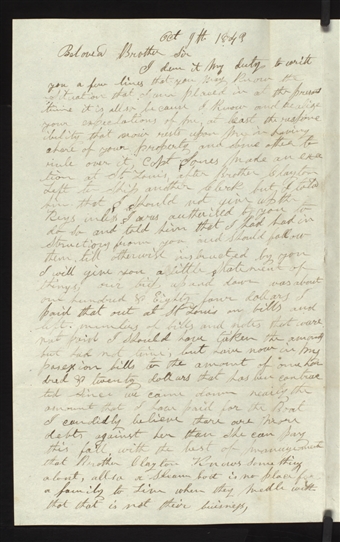 Oct 9th 1843
Beloved Brother Sir
I deem it My duty to write
you a few lines that you May Know the
situation that I am placed in at the present
time it is also because I Know and realize
your expectations of me, at least the respons
ibility that now rests upon My in having
charge of your property, and being called to
rule over it, Capt Jones made an exer
tion at St Louis, after Brother Clayton
left to Ship another Clerk but I told
him that I should not give up the
Keys unless I was authorised by your to
do so and told him that I had had in
structions from you and should follow
them till otherwise instructed by you
I will give you a little statement of
things, our bill up and down was about
one hundred & Eighty four dollars I
paid that out at St Louis in bills and
left, number of bills and notes that were
not paid I should have taken the amount
but had not time, but have now in My
possession bills to the amount of one hun
dred & twenty dollars that has been contrac
ted since we came down nearly the
amount that I have paid for the Boat
I candidly believe there are more
debts against her than she can pay
this fall, with the best of management
that Brother Clayton Knows something
about, allso a Steam boat is no place for
a family to live when they medle with
that that is not their business,